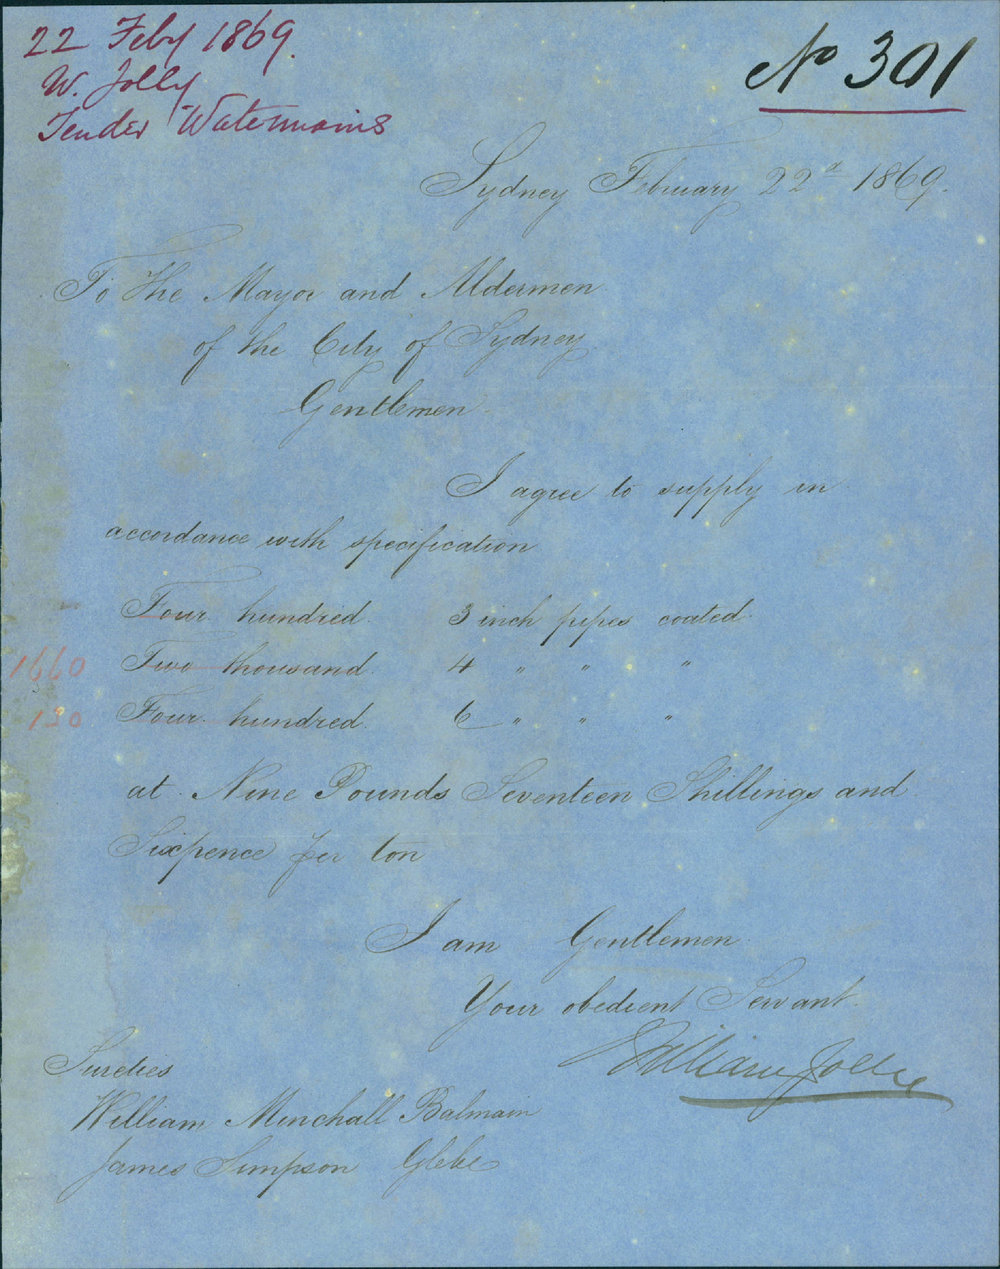 22 Feby 1869.
W. Jolly
Tender Watermains
No 301
Sydney February 22d 1869.
To the Mayor and Aldermen
of the City of Sydney
Gentlemen
I agree to supply in
accordance with specification
Four hundred 3 inch pipes coated
1660 Two thousand 4 " " "
130 Four hundred 6 " " "
at Nine Pounds Seventeen Shillings and
Sixpence per ton
I am Gentlemen
Your obedient Servant
William Jolly
Sureties
William Minchall Balmain
James Simpson Glebe